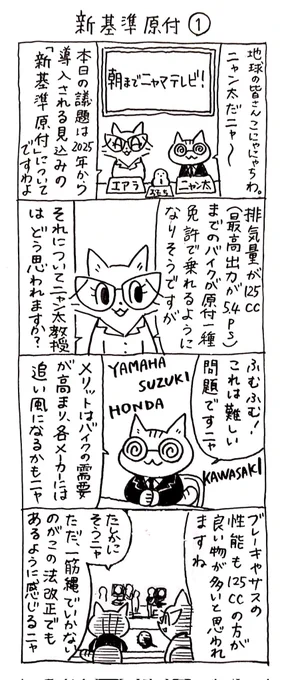 新基準原付①
地球の皆さんこにゃにゃちわ。
ニャン太だニャ〜
朝までニャマテレビ！
エアラ
ニャン太
本日の議題は2025年から
導入される見込みの
「新基準原付」について
ですわよ
排気量が125cc
(最高出力が5.4ps)
までのバイクが原付一種
免許で乗れるように
なりそうですが
それについてニャン太教授
はどう思われますか？
ふむふむ！
これは難しい
問題ですニャ
YAMAHA
SUZUKI
HONDA
KAWASAKI
メリットはバイクの需要
が高まり、各メーカーには
追い風になるかもニャ
ブレーキやサスの
性能も125ccの方が
良い物が多いと思われ
ますね
たしかに
そうニャ
ただ、一筋縄でいかない
のがこの法改正でも
あるように感じるニャ